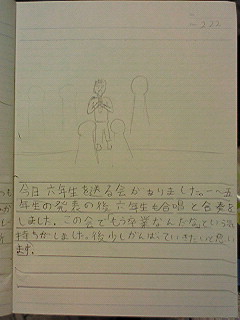 2.22
今日六年生を送る会がありました。一〜五
年生の発表の後六年生も合唱と合奏を
しました。この会で「もう卒業なんだな」という気
持ちがしました。後少しがんばっていきたいと思い
ます。